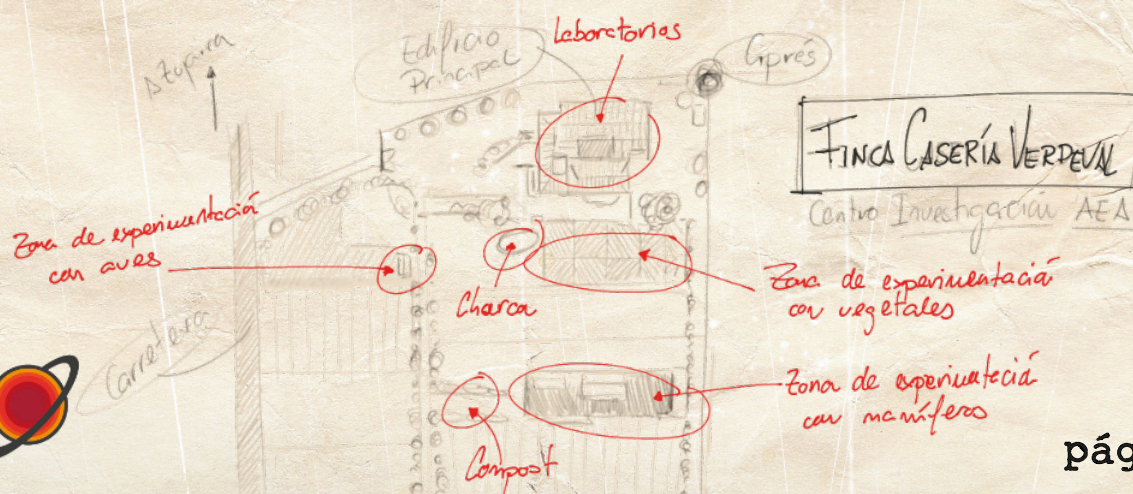 Edificio
Principal
Laboratorios
Ciprés
FINCA CASERÍA VERDEVAL
Centro Investigación AEA
Zona de experimentació
con aves
Charca
Zona de experimentació
con vegetales
Carretera
Zona de experimentació
con mamíferos
Compost
pág